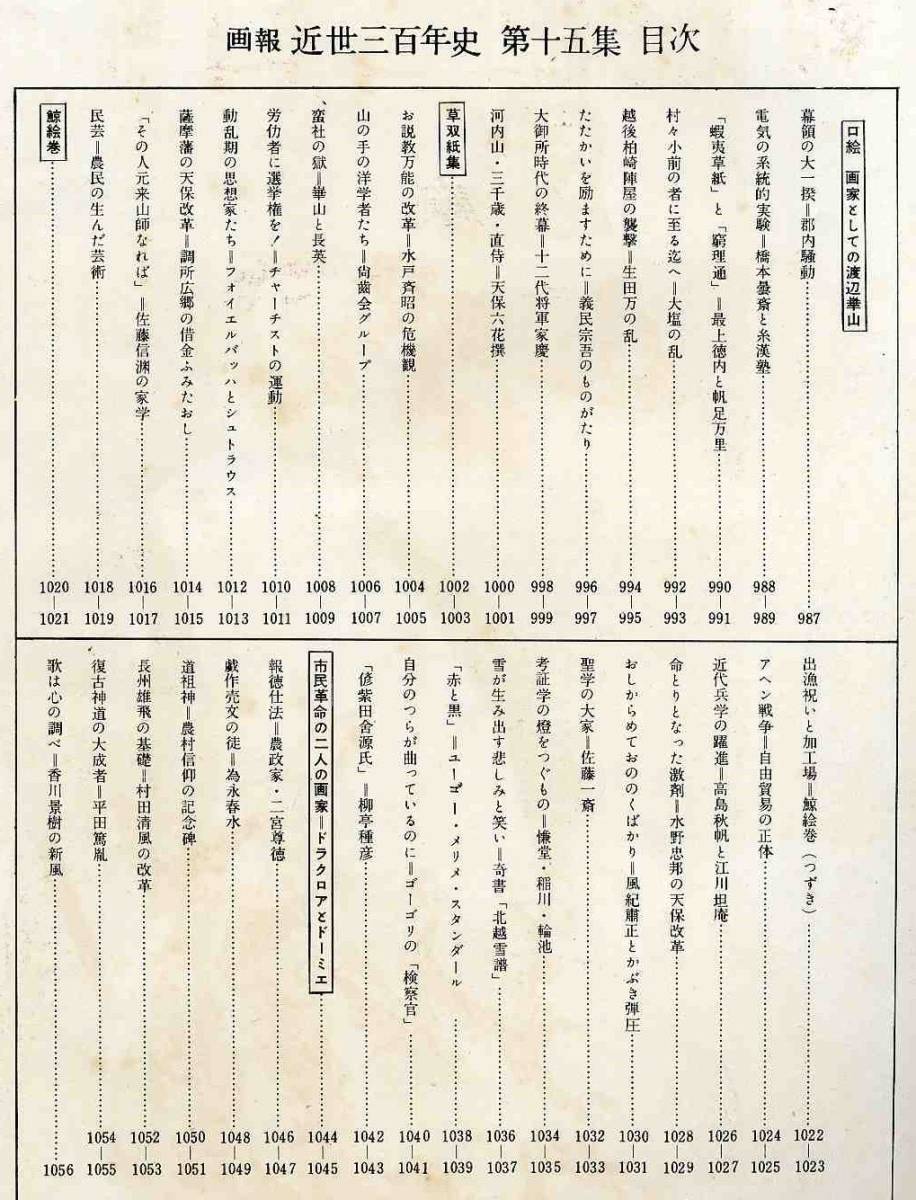 画報 近世三百年史 第十五集 目次
口絵 画家としての渡辺崋山
幕領の大一揆＝郡内騒動 987
電気の系統的実験＝橋本曇斎と糸漢塾 988―989
「蝦夷草紙」と「窮理通」＝最上徳内と帆足万里 990―991
村々小前の者に至る迄へ＝大塩の乱 992―993
越後柏崎陣屋の襲撃＝生田万の乱 994―995
たたかいを励ますために＝義民宗吾のものがたり 996―997
大御所時代の終幕＝十二代将軍家慶 998―999
河内山・三千歳・直侍＝天保六花撰 1000―1001
草双紙集 1002―1003
お説教万能の改革＝水戸斉昭の危機観 1004―1005
山の手の洋学者たち＝尚歯会グループ 1006―1007
蛮社の獄＝崋山と長英 1008―1009
労働者に選挙権を！＝チャーチストの運動 1010―1011
動乱期の思想家たち＝フォイエルバッハとシュトラウス 1012―1013
薩摩藩の天保改革＝調所広郷の借金ふみたおし 1014―1015
「その人元来山師なれば」＝佐藤信渊の家学 1016―1017
民芸＝農民の生んだ芸術 1018―1019
鯨絵巻 1020―1021
出漁祝いと加工場＝鯨絵巻（つずき） 1022―1023
アヘン戦争＝自由貿易の正体 1024―1025
近代兵学の躍進＝高島秋帆と江川坦庵 1026―1027
命とりとなった激剤＝水野忠邦の天保改革 1028―1029
おしからめておののくばかり＝風紀粛正とかぶき弾圧 1030―1031
聖学の大家＝佐藤一斎 1032―1033
考証学の燈をつぐもの＝慊堂・稲川・輪池 1034―1035
雪が生み出す悲しみと笑い＝奇書「北越雪譜」 1036―1037
「赤と黒」＝ユーゴー・メリメ・スタンダール 1038―1039
自分のつらが曲っているのに＝ゴーゴリの「検察官」 1040―1041
「偐紫田舎源氏」＝柳亭種彦 1042―1043
市民革命の二人の画家＝ドラクロアとドーミエ 1044―1045
報徳仕法＝農政家・二宮尊徳 1046―1047
戯作売文の徒＝為永春水 1048―1049
道祖神＝農村信仰の記念碑 1050―1051
長州雄飛の基礎＝村田清風の改革 1052―1053
復古神道の大成者＝平田篤胤 1054―1055
歌は心の調べ＝香川景樹の新風 1056